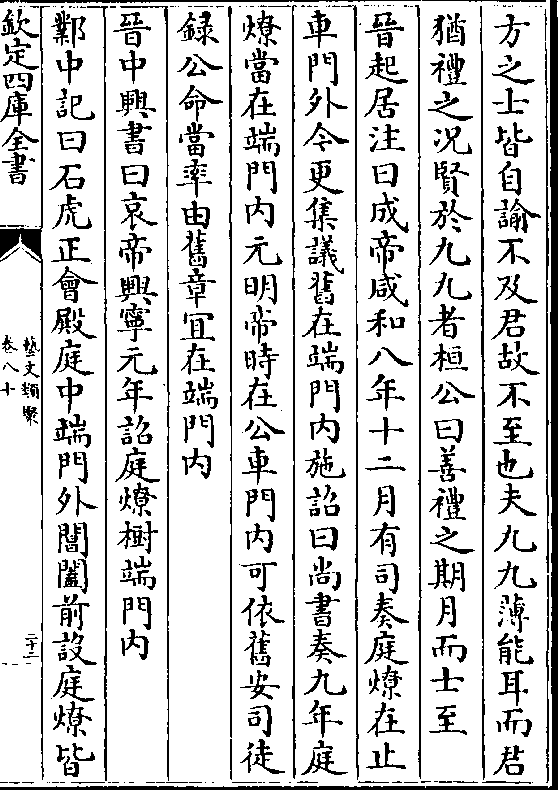 方之士皆自諭不及君故不至也夫九九薄能耳而君
猶禮之况賢於九九者桓公曰善禮之期月而士至
晉起居注曰成帝咸和八年十二月有司奏庭燎在止
車門外令更集議舊在端門內施詔曰尚書奏九年庭
燎當在端門內元明帝時在公車門內可依舊安司徒
録公命當率由舊章宜在端門内
晉中興書曰哀帝興寧元年詔庭燎樹端門內
鄴中記曰石虎正會殿庭中端門外閶闔前設庭燎皆
欽定四庫全書
藝文類聚
卷八十
二十二